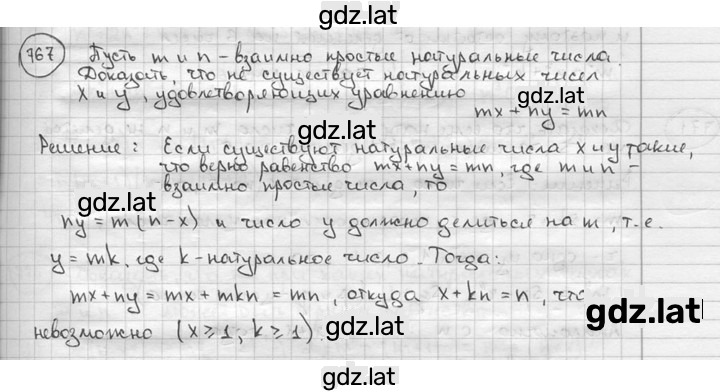 gdz.lat
767 Пусть m и n – взаимно простые натуральные числа.
Доказать, что не существует натуральных чисел
x и y, удовлетворяющих уравнению
gdz.lat
mx + ny = mn
gdz.lat
Решение: Если существуют натуральные числа x и y такие,
что верно равенство mx+ny=mn, где m и n –
взаимно простые числа, то
gdz.lat
ny = m(n-x) и число y должно делиться на m, т.е.
y = mk, где k - натуральное число. Тогда:
gdz.lat
mx+ny = mx + mkn = mn, откуда x+kn = n, что
gdz.lat
невозможно (x ⩾ 1, k ⩾ 1).
gdz.lat
gdz.lat